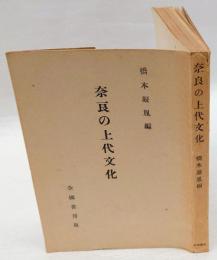 橋本凝胤編
奈良の上代文化
全國書房版
奈良の上代文化
橋本凝胤編